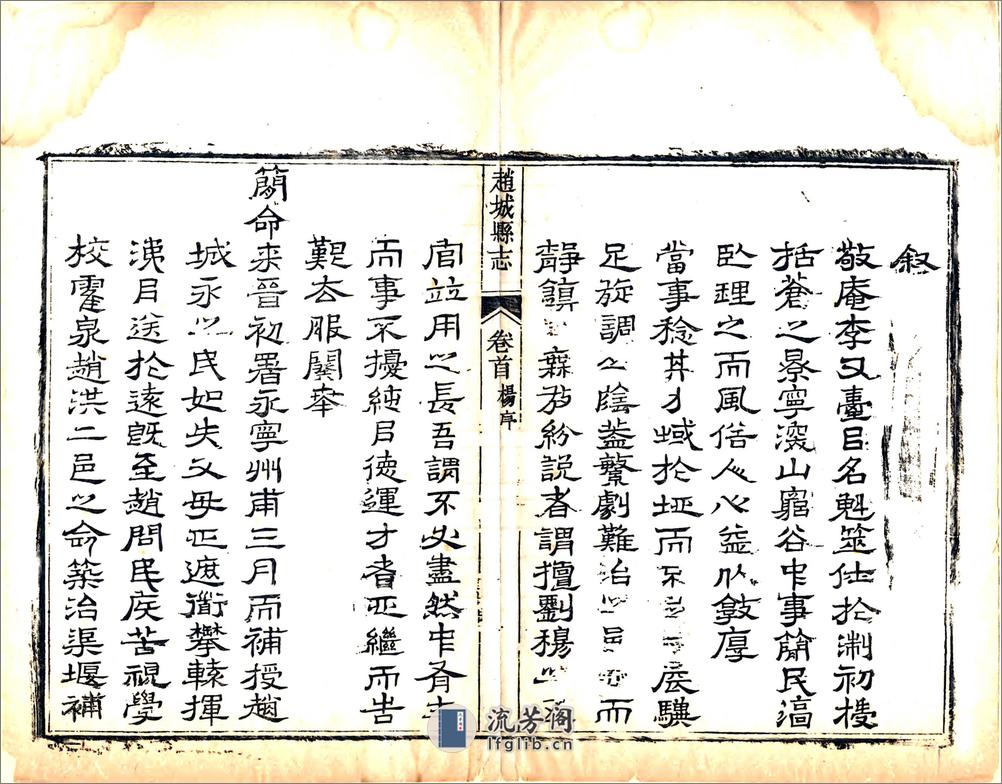 叙
敬庵李又臺㠯名魁筮仕於淛初授
括蒼之景寧深山窮谷中事簡民淳
臥理之而風俗人心益以敦厚
當事稔其才域於地而不展驥
足旋調山陰蓋繁劇難治而
靜鎮紛說者謂擅劉穆
趙城縣志 卷首 楊序
竝用之長吾謂不必盡然中有主
而事不擾純㠯德運才者繼而告
艱去服闋奉
簡命来晉初署永寧州甫三月而補授趙
城永之民如失父母遮衢攀轅揮
涕㠯送於遠旣至趙問民疾苦視學
校霍泉趙洪二邑之命築治渠堰補
流芳閣
lfglib.cn